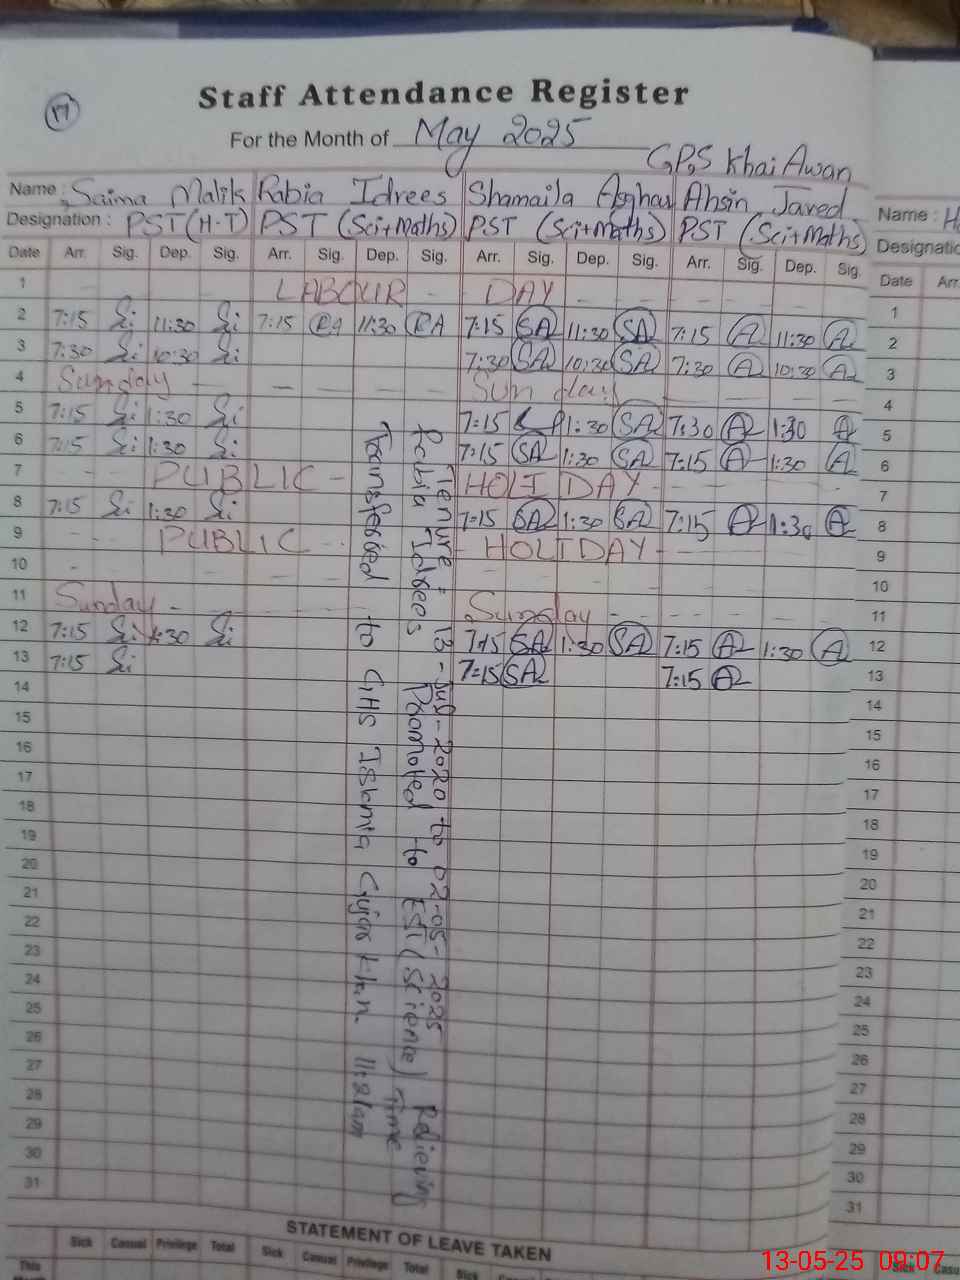 17
Staff Attendance Register
For the Month of May 2025
G.P.S Khai Awan
Name : Saima Malik Rabia Idrees Shamaila Asghar Ahsin Javed
Designation : PST (H-T) PST (Sci+Maths) PST (Sci+Maths) PST (Sci+Maths)
Date Arr. Sig. Dep. Sig. Arr. Sig. Dep. Sig. Arr. Sig. Dep. Sig. Arr. Sig. Dep. Sig.
1 LABOUR DAY
2 7:15 11:30 7:15 11:30 RA 7:15 SA 11:30 SA 7:15 A 11:30 A
3 7:30 10:30 7:30 SA 10:30 SA 7:30 A 10:30 A
4 Sunday Sunday
5 7:15 1:30 7:15 1:30 SA 7:30 A 1:30 A
6 7:15 1:30 7:15 SA 1:30 SA 7:15 A 1:30 A
7 PUBLIC HOLIDAY
8 7:15 1:30 7:15 SA 1:30 SA 7:15 A 1:30 A
9 PUBLIC HOLIDAY
10
11 Sunday Sunday
12 7:15 1:30 7:15 SA 1:30 SA 7:15 A 1:30 A
13 7:15 7:15 SA 7:15 A
14
15
16
17
18
19
20
21
22
23
24
25
26
27
28
29
30
31
Tenure : 13-Jul-2020 to 02-05-2025
Rabia Idrees Promoted to EST (Science) Relieving
Transferred to GHS Islamia Gujar Khan. Time 11:21am
STATEMENT OF LEAVE TAKEN
Sick Casual Privilege Total Sick Casual Privilege Total Sick
This
Name :
Designatio
Date Arr
1
2
3
4
5
6
7
8
9
10
11
12
13
14
15
16
17
18
19
20
21
22
23
24
25
26
27
28
29
30
31
Sick Casu
13-05-25 09:07